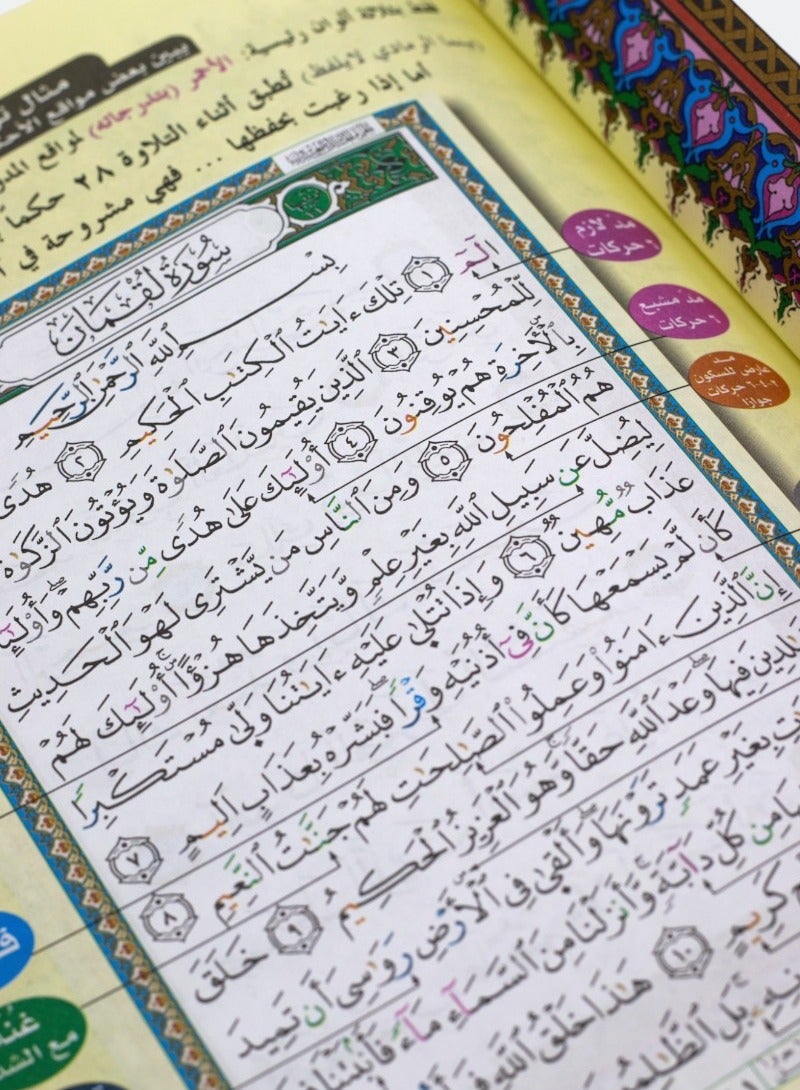 فقط بثلاثة ألوان رئيسية: الأحمر (بتدرجاته) لمواقع
(بينما الرمادي لا يلفظ) نطبق أثناء التلاوة ٢٨ حكما
أما إذا رغبت بحفظها ... فهي مشروحة في
مثال
يبين بعض مواقع
سُورَةُ لُقْمَان
بِسْمِ ٱللَّهِ ٱلرَّحْمَٰنِ ٱلرَّحِيمِ
الٓمٓ ١ تِلْكَ ءَايَٰتُ ٱلْكِتَٰبِ ٱلْحَكِيمِ ٢ هُدًى
لِّلْمُحْسِنِينَ ٣ ٱلَّذِينَ يُقِيمُونَ ٱلصَّلَوٰةَ وَيُؤْتُونَ ٱلزَّكَوٰةَ
بِٱلْأَخِرَةِ هُمْ يُوقِنُونَ ٤ أُوْلَٰٓئِكَ عَلَىٰ هُدًى مِّن رَّبِّهِمْ ۖ وَأُوْلَٰٓئِكَ
هُمُ ٱلْمُفْلِحُونَ ٥ وَمِنَ ٱلنَّاسِ مَن يَشْتَرِى لَهْوَ ٱلْحَدِيثِ
لِيُضِلَّ عَن سَبِيلِ ٱللَّهِ بِغَيْرِ عِلْمٍ وَيَتَّخِذَهَا هُزُوًا ۚ أُوْلَٰٓئِكَ لَهُمْ
عَذَابٌ مُّهِينٌ ٦ وَإِذَا تُتْلَىٰ عَلَيْهِ ءَايَٰتُنَا وَلَّىٰ مُسْتَكْبِرًا
كَأَن لَّمْ يَسْمَعْهَا كَأَنَّ فِىٓ أُذُنَيْهِ وَقْرًا ۖ فَبَشِّرْهُ بِعَذَابٍ أَلِيمٍ ٧
إِنَّ ٱلَّذِينَ ءَامَنُوا۟ وَعَمِلُوا۟ ٱلصَّٰلِحَٰتِ لَهُمْ جَنَّٰتُ ٱلنَّعِيمِ ٨
فِيهَا ۖ وَعْدَ ٱللَّهِ حَقًّا ۚ وَهُوَ ٱلْعَزِيزُ ٱلْحَكِيمُ ٩ خَلَقَ
بِغَيْرِ عَمَدٍ تَرَوْنَهَا ۖ وَأَلْقَىٰ فِى ٱلْأَرْضِ رَوَٰسِىَ أَن تَمِيدَ
مِن كُلِّ دَآبَّةٍ ۚ وَأَنزَلْنَا مِنَ ٱلسَّمَآءِ مَآءً فَأَنۢبَتْنَا
كَرِيمٍ ١٠ هَٰذَا خَلْقُ ٱللَّهِ
بَلِ
مد لازم
٦ حركات
مد مشبع
٦ حركات
مد
عارض للسكون
٢-٤-٦ حركات
جوازا
مع